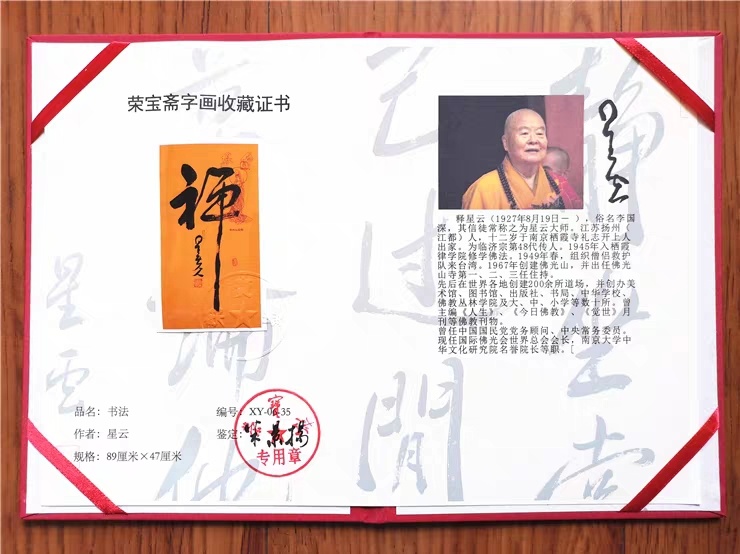 荣宝斋字画收藏证书
禅
星云
品名：书法
编号：XY-06-35
作者：星云
鉴定：
规格：89厘米×47厘米
专用章
释星云（1927年8月19日－ ），俗名李国
深，其信徒常称之为星云大师。江苏扬州（
江都）人，十二岁于南京栖霞寺礼志开上人
出家。为临济宗第48代传人。1945年入栖霞
律学院修学佛法。1949年春，组织僧侣救护
队来台湾。1967年创建佛光山，并出任佛光
山寺第一、二、三任住持。
先后在世界各地创建200余所道场，并创办美
术馆、图书馆、出版社、书局、中华学校、
佛教丛林学院及大、中、小学等数十所。曾
主编《人生》、《今日佛教》、《觉世》月
刊等佛教刊物。
曾任中国国民党党务顾问、中央常务委员。
现任国际佛光会世界总会会长，南京大学中
华文化研究院名誉院长等职。[